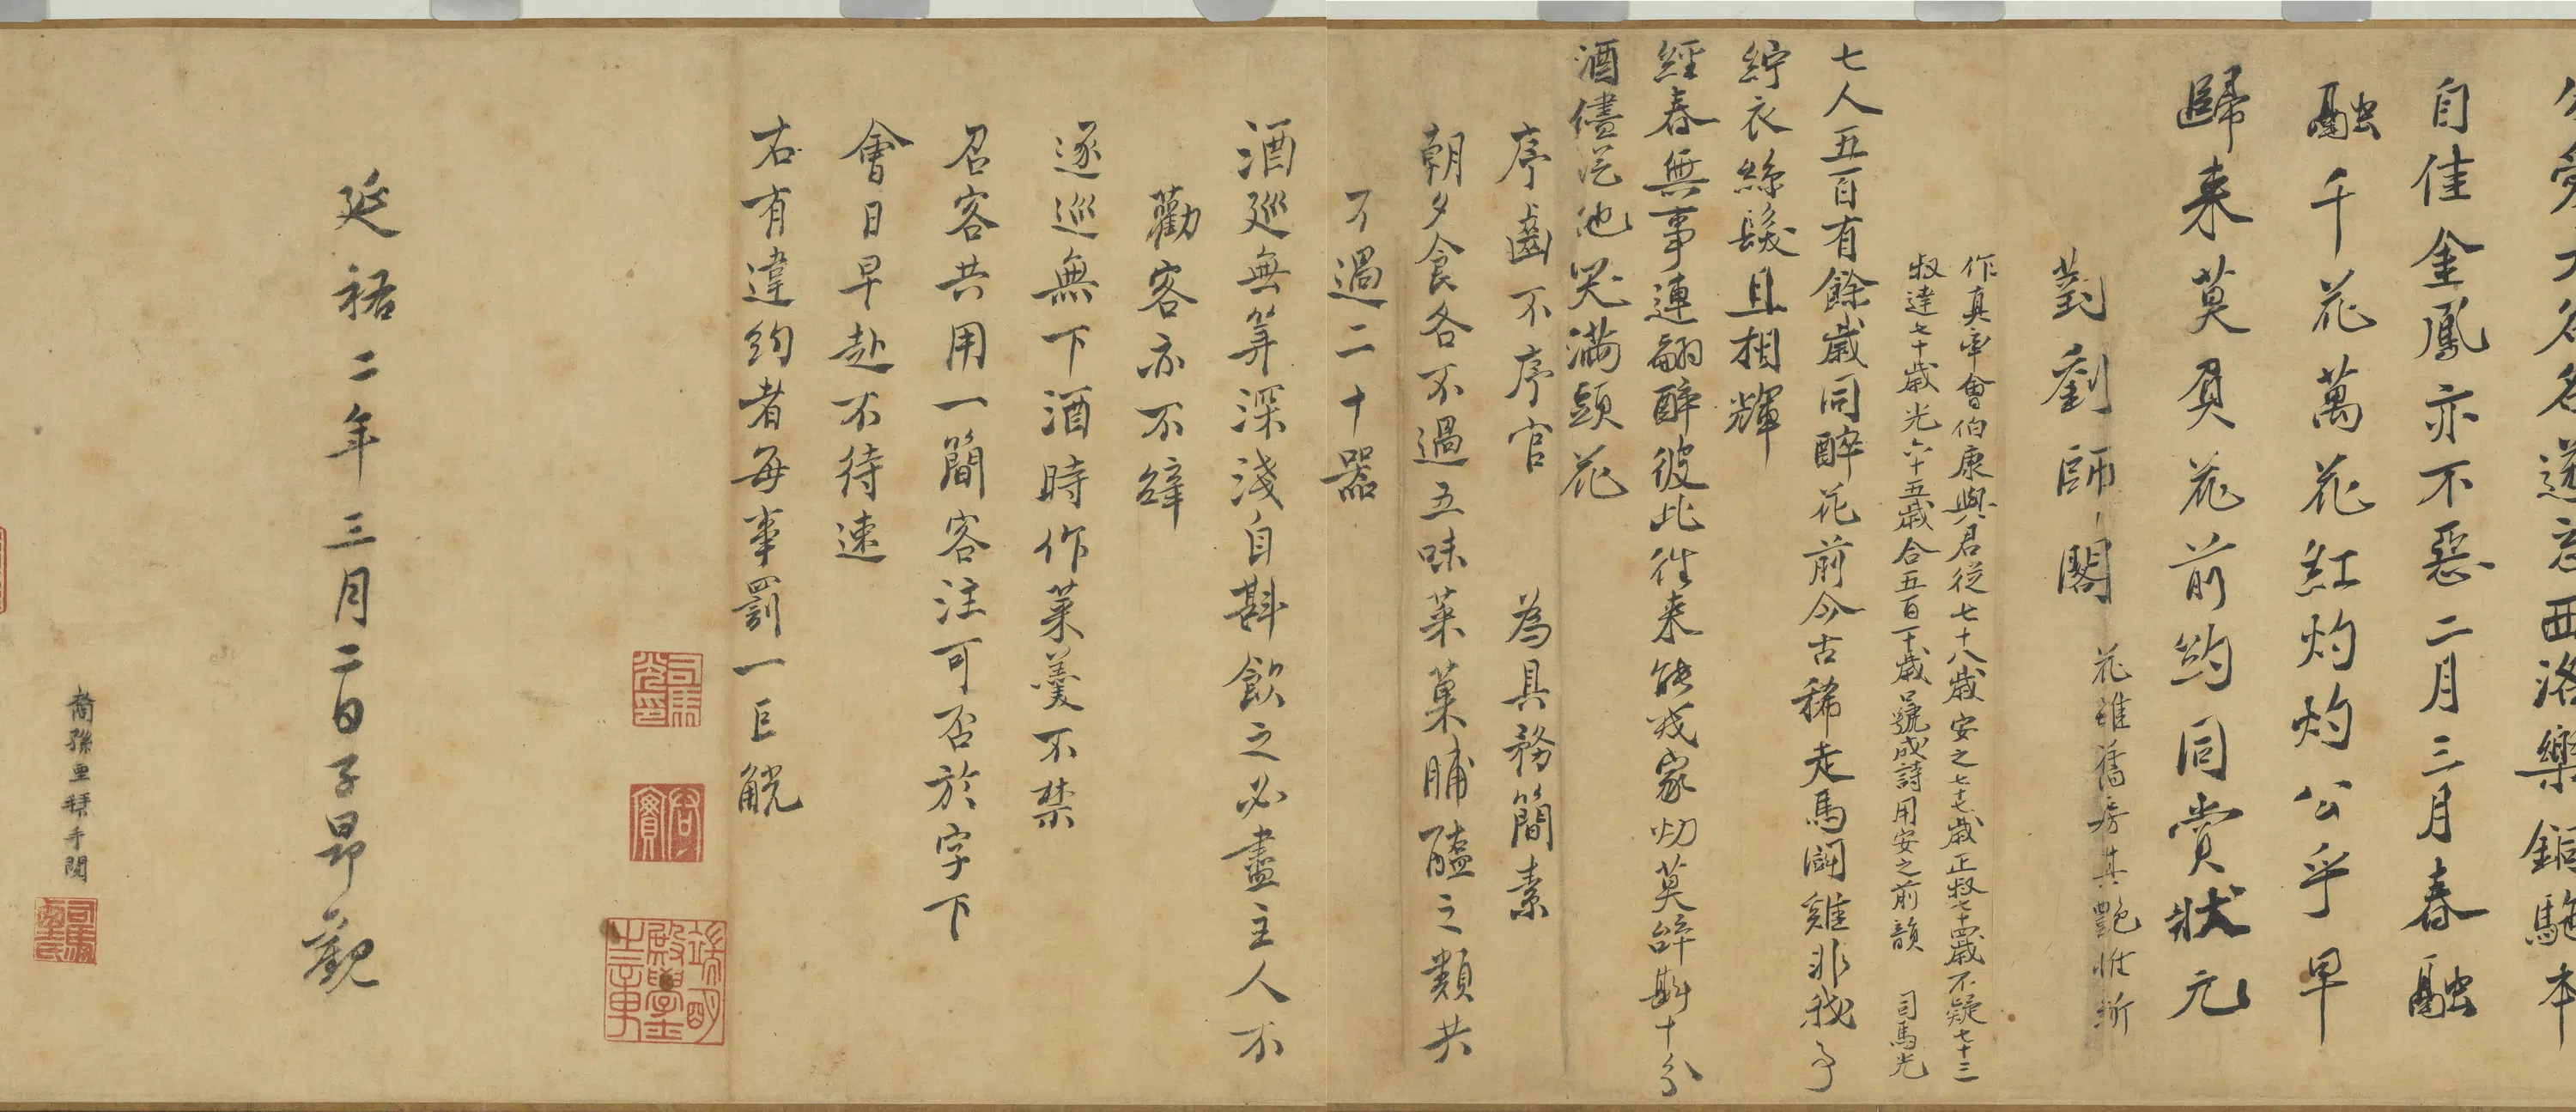 自佳金鳳亦不惡二月三月春融
融千花萬花紅灼灼公乎早
歸来莫負花前約同賞狀元
對劉師閣
花雖舊房其艷惟新
作真率會伯康與君從七十八歲安之七十七歲正叔七十四歲不疑七十三
叔達七十歲光六十五歲合五百一十歲號成詩用安之前韻 司馬光
七人五百有餘歲同醉花前今古稀走馬鬪雞非我事
紵衣絲髮且相輝
經春無事連翩醉彼此往来能幾家切莫辝斟十分
酒儘從他笑滿頭花
序齒不序官 為具務簡素
朝夕食各不過五味菜菓脯醢之類共
不過二十器
酒廵無筭深淺自斟飲之必盡主人不
勸客亦不辝
逐巡無下酒時作菜羹不禁
召客共用一簡客注可否於字下
會日早赴不待速
右有違約者每事罰一巨觥
司馬光印
君實
端明殿學士章
延祐二年三月二日子昂觀
裔孫亜拜手閱